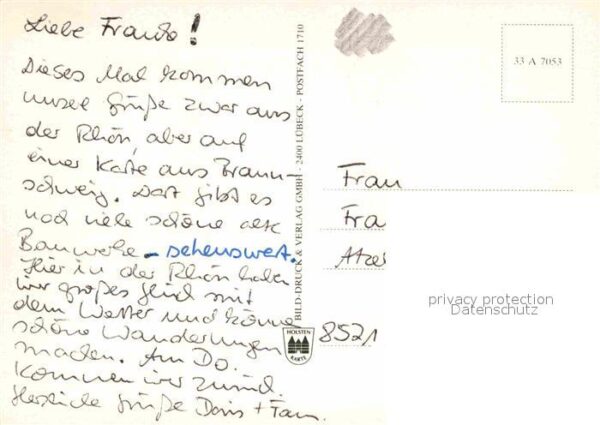 Liebe Frauke!
Dieses Mal kommen
unsere Grüße zwar aus
der Rhön, aber auf
einer Karte aus Braun-
schweig. Dort gibt es
noch viele schöne alte
Bauwerke – sehenswert.
Hier in der Rhön haben
wir großes Glück mit
dem Wetter und können
schöne Wanderungen
machen. Am Do.
kommen wir zurück.
Herzliche Grüße Doris + Fam.
BILD-DRUCK & VERLAG GMBH - 2400 LÜBECK - POSTFACH 1710
HOLSTEN
KARTE
33 A 7053
Frau
Fra
Atzel
8521
privacy protection
Datenschutz